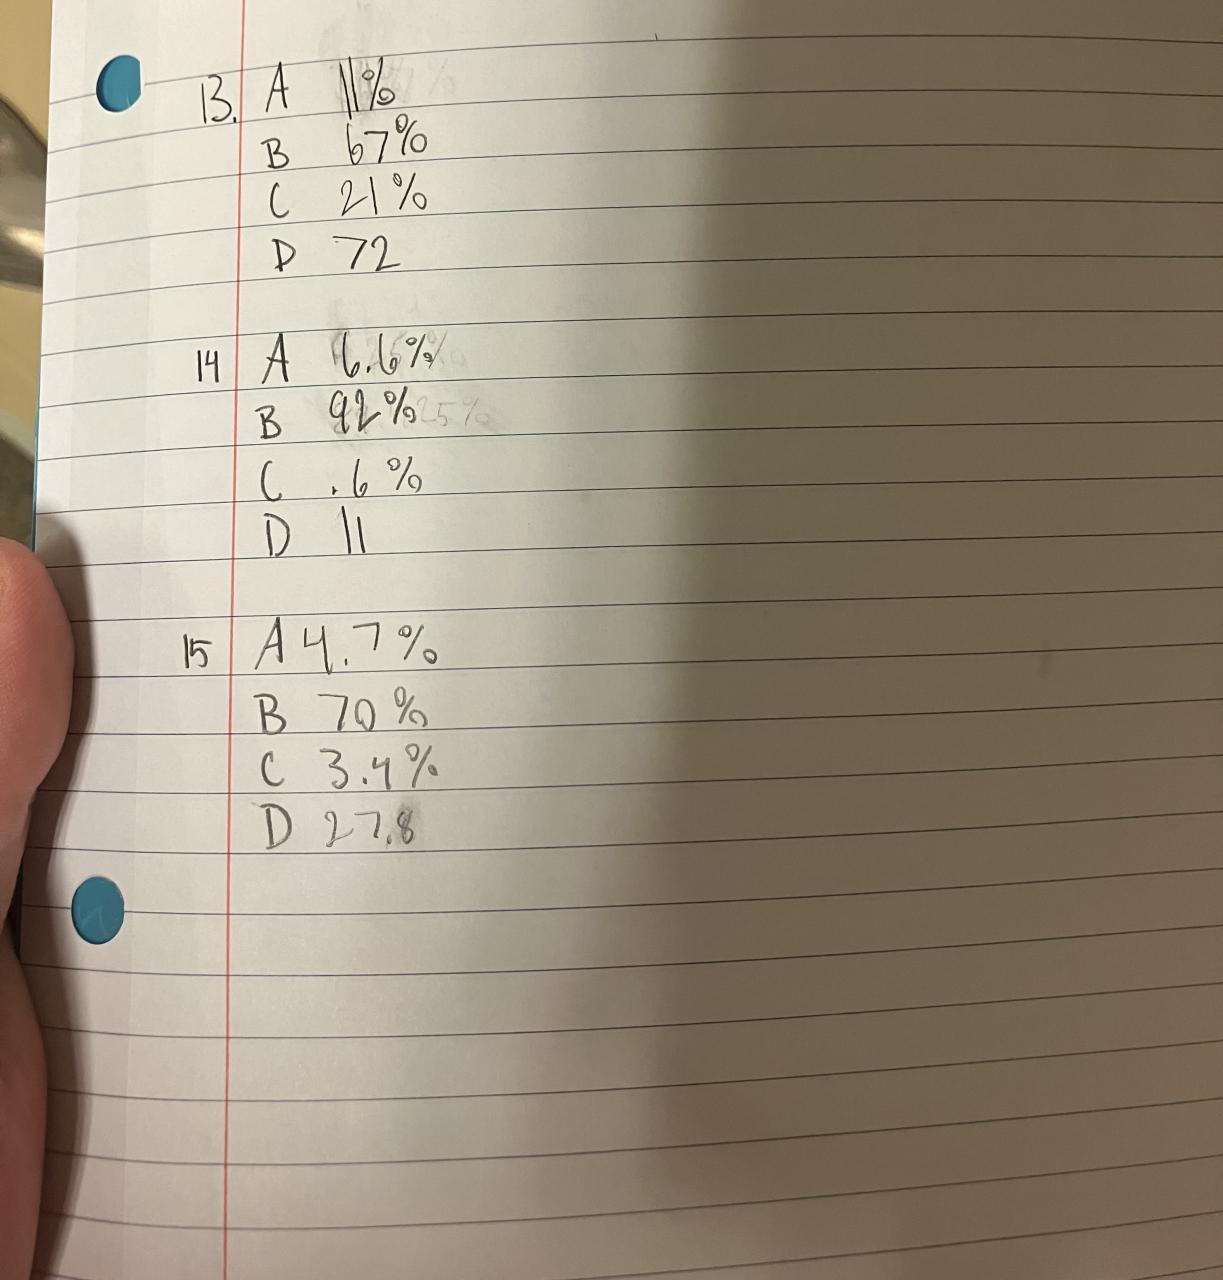 13. A 11%
B 67%
C 21%
D 72
14 A 6.6%
B 92%
C .6%
D 11
15 A 4.7%
B 70%
C 3.4%
D 27.8